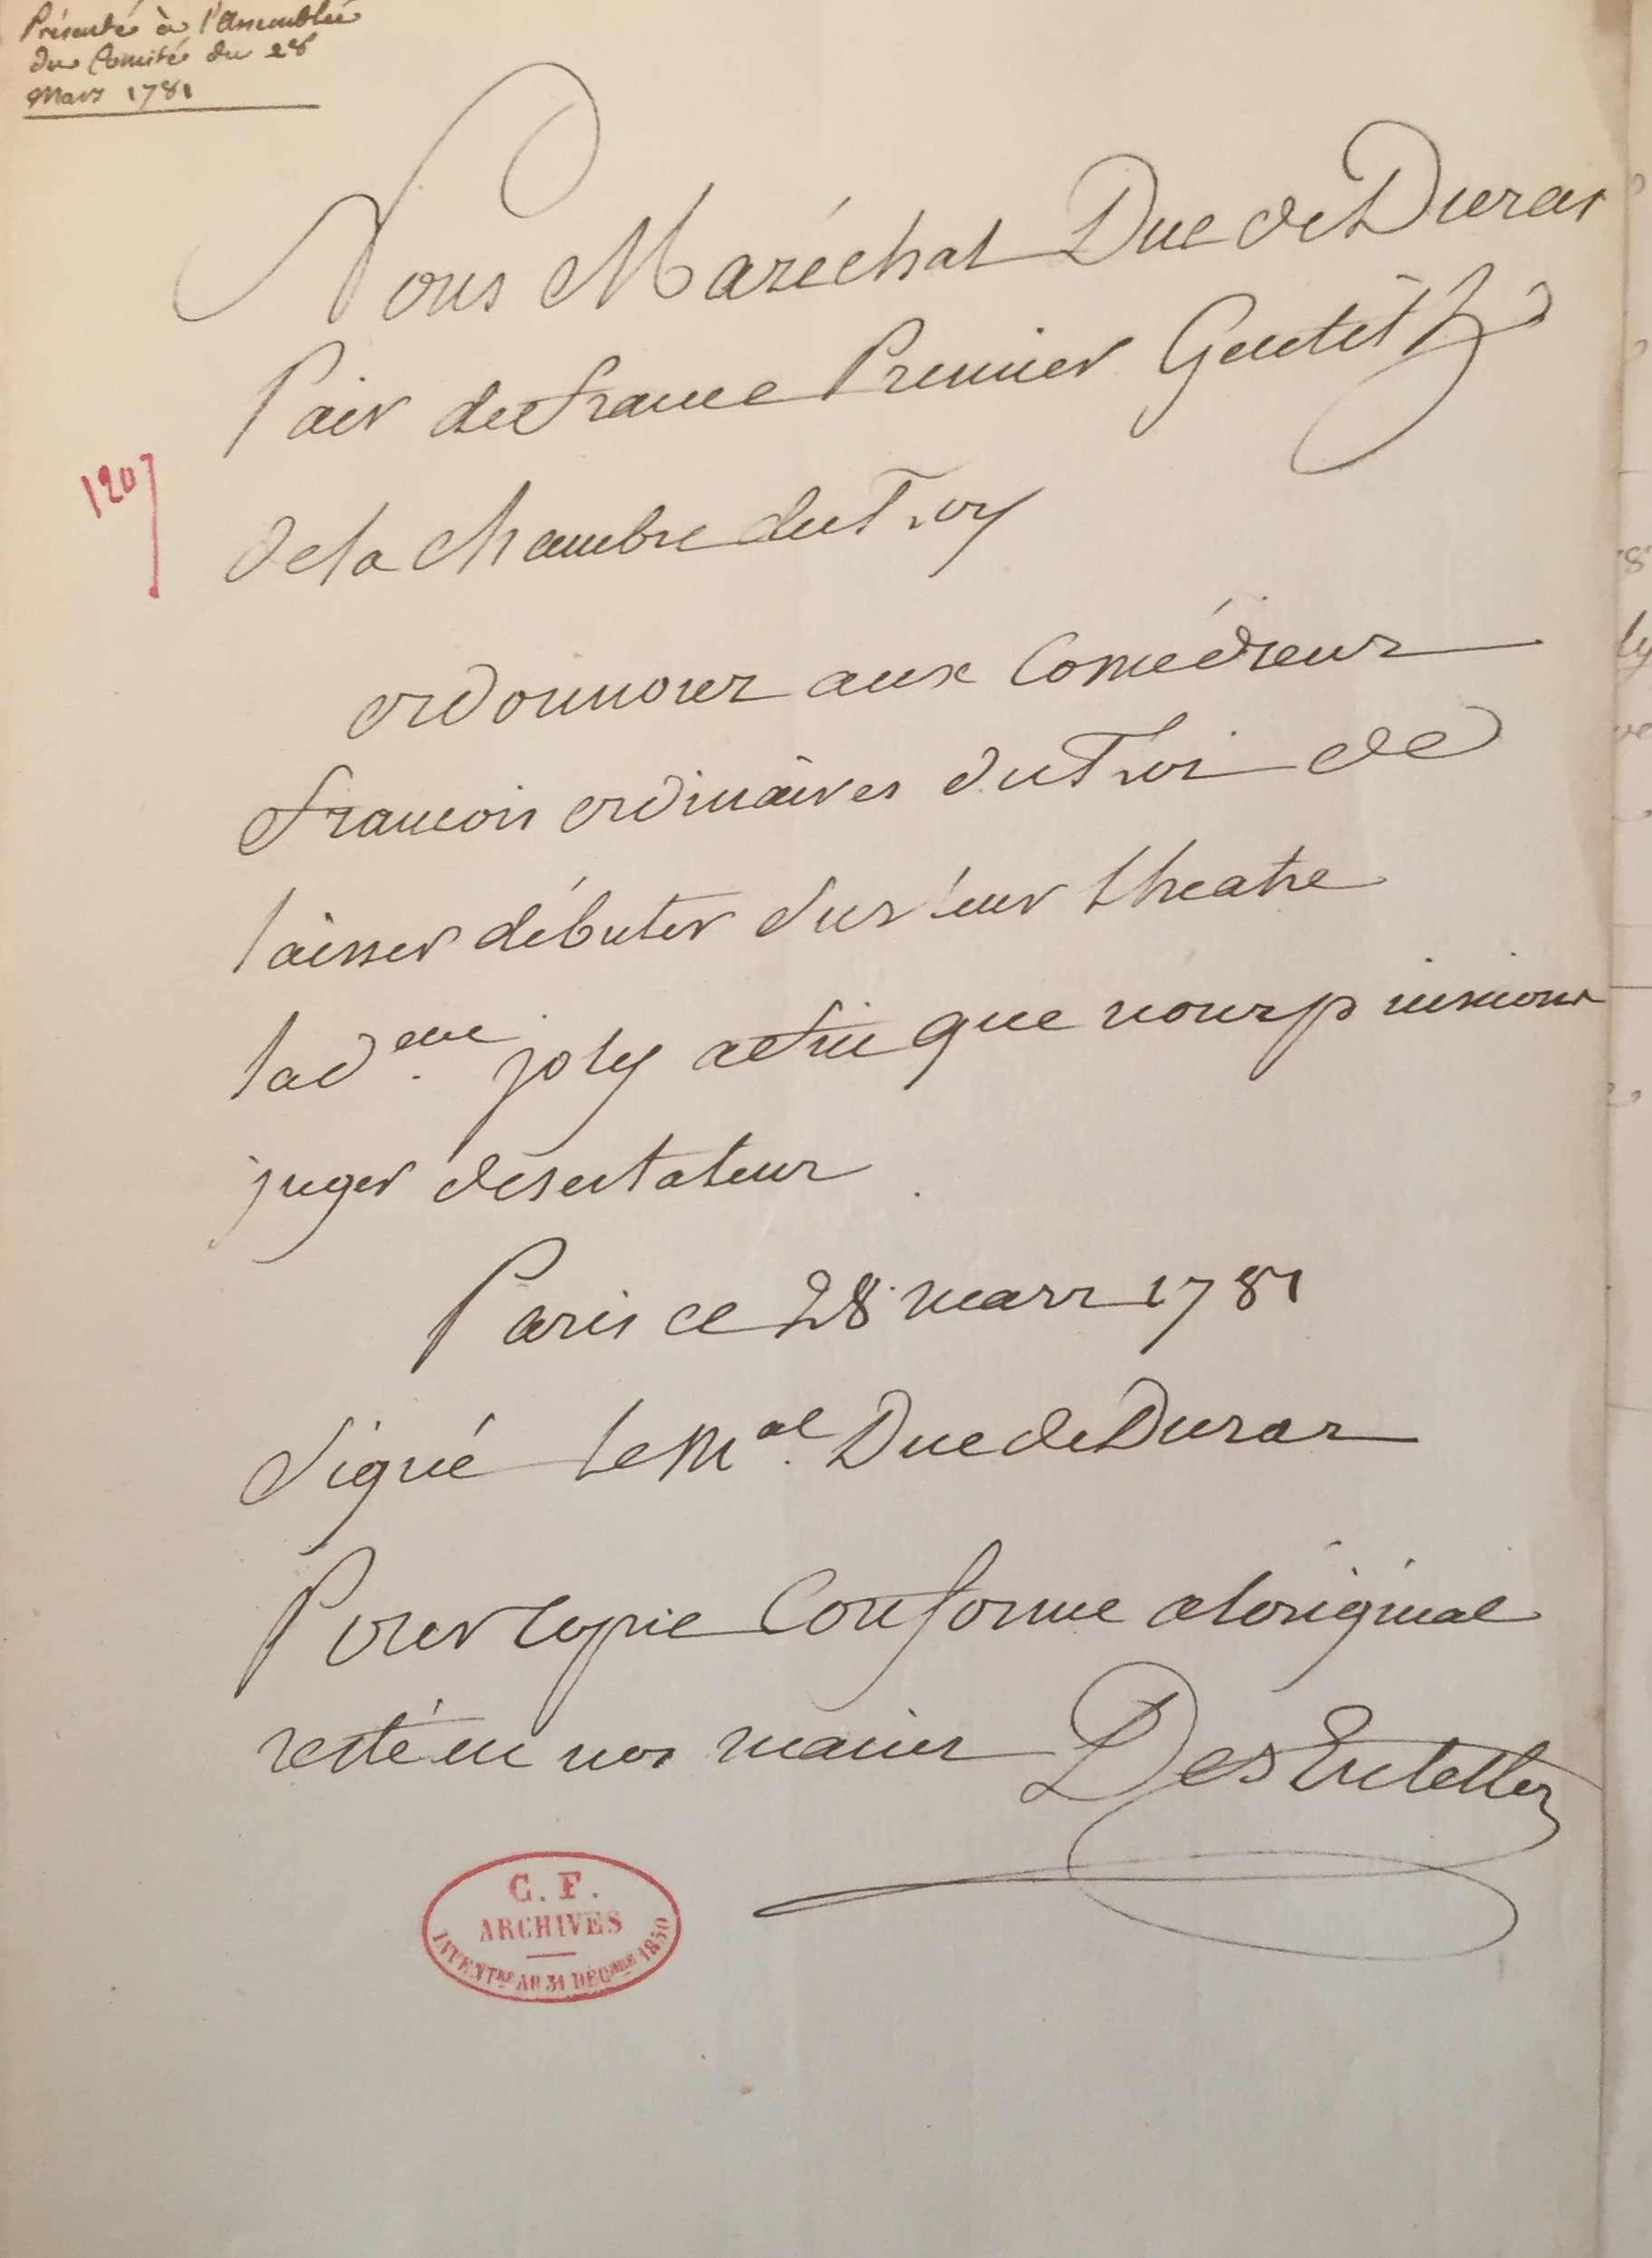 Présenté à l'Assemblée
du Comité du 28
Mars 1781
Nous Maréchal Duc de Duras
Pair de france Premier Gentilh
de la chambre du Roy
120
ordonnons aux Comédiens
francois ordinaires du Roi de
laisser débuter sur leur theatre
la d.elle joly afin que nous puissions
juger de ses talens
Paris ce 28 mars 1781
Signé Le M.al Duc de Duras
Pour Copie Conforme a loriginal
resté en nos mains Des Entelles
C. F.
ARCHIVES
INVENTRE AU 31 DÉCBRE 1850